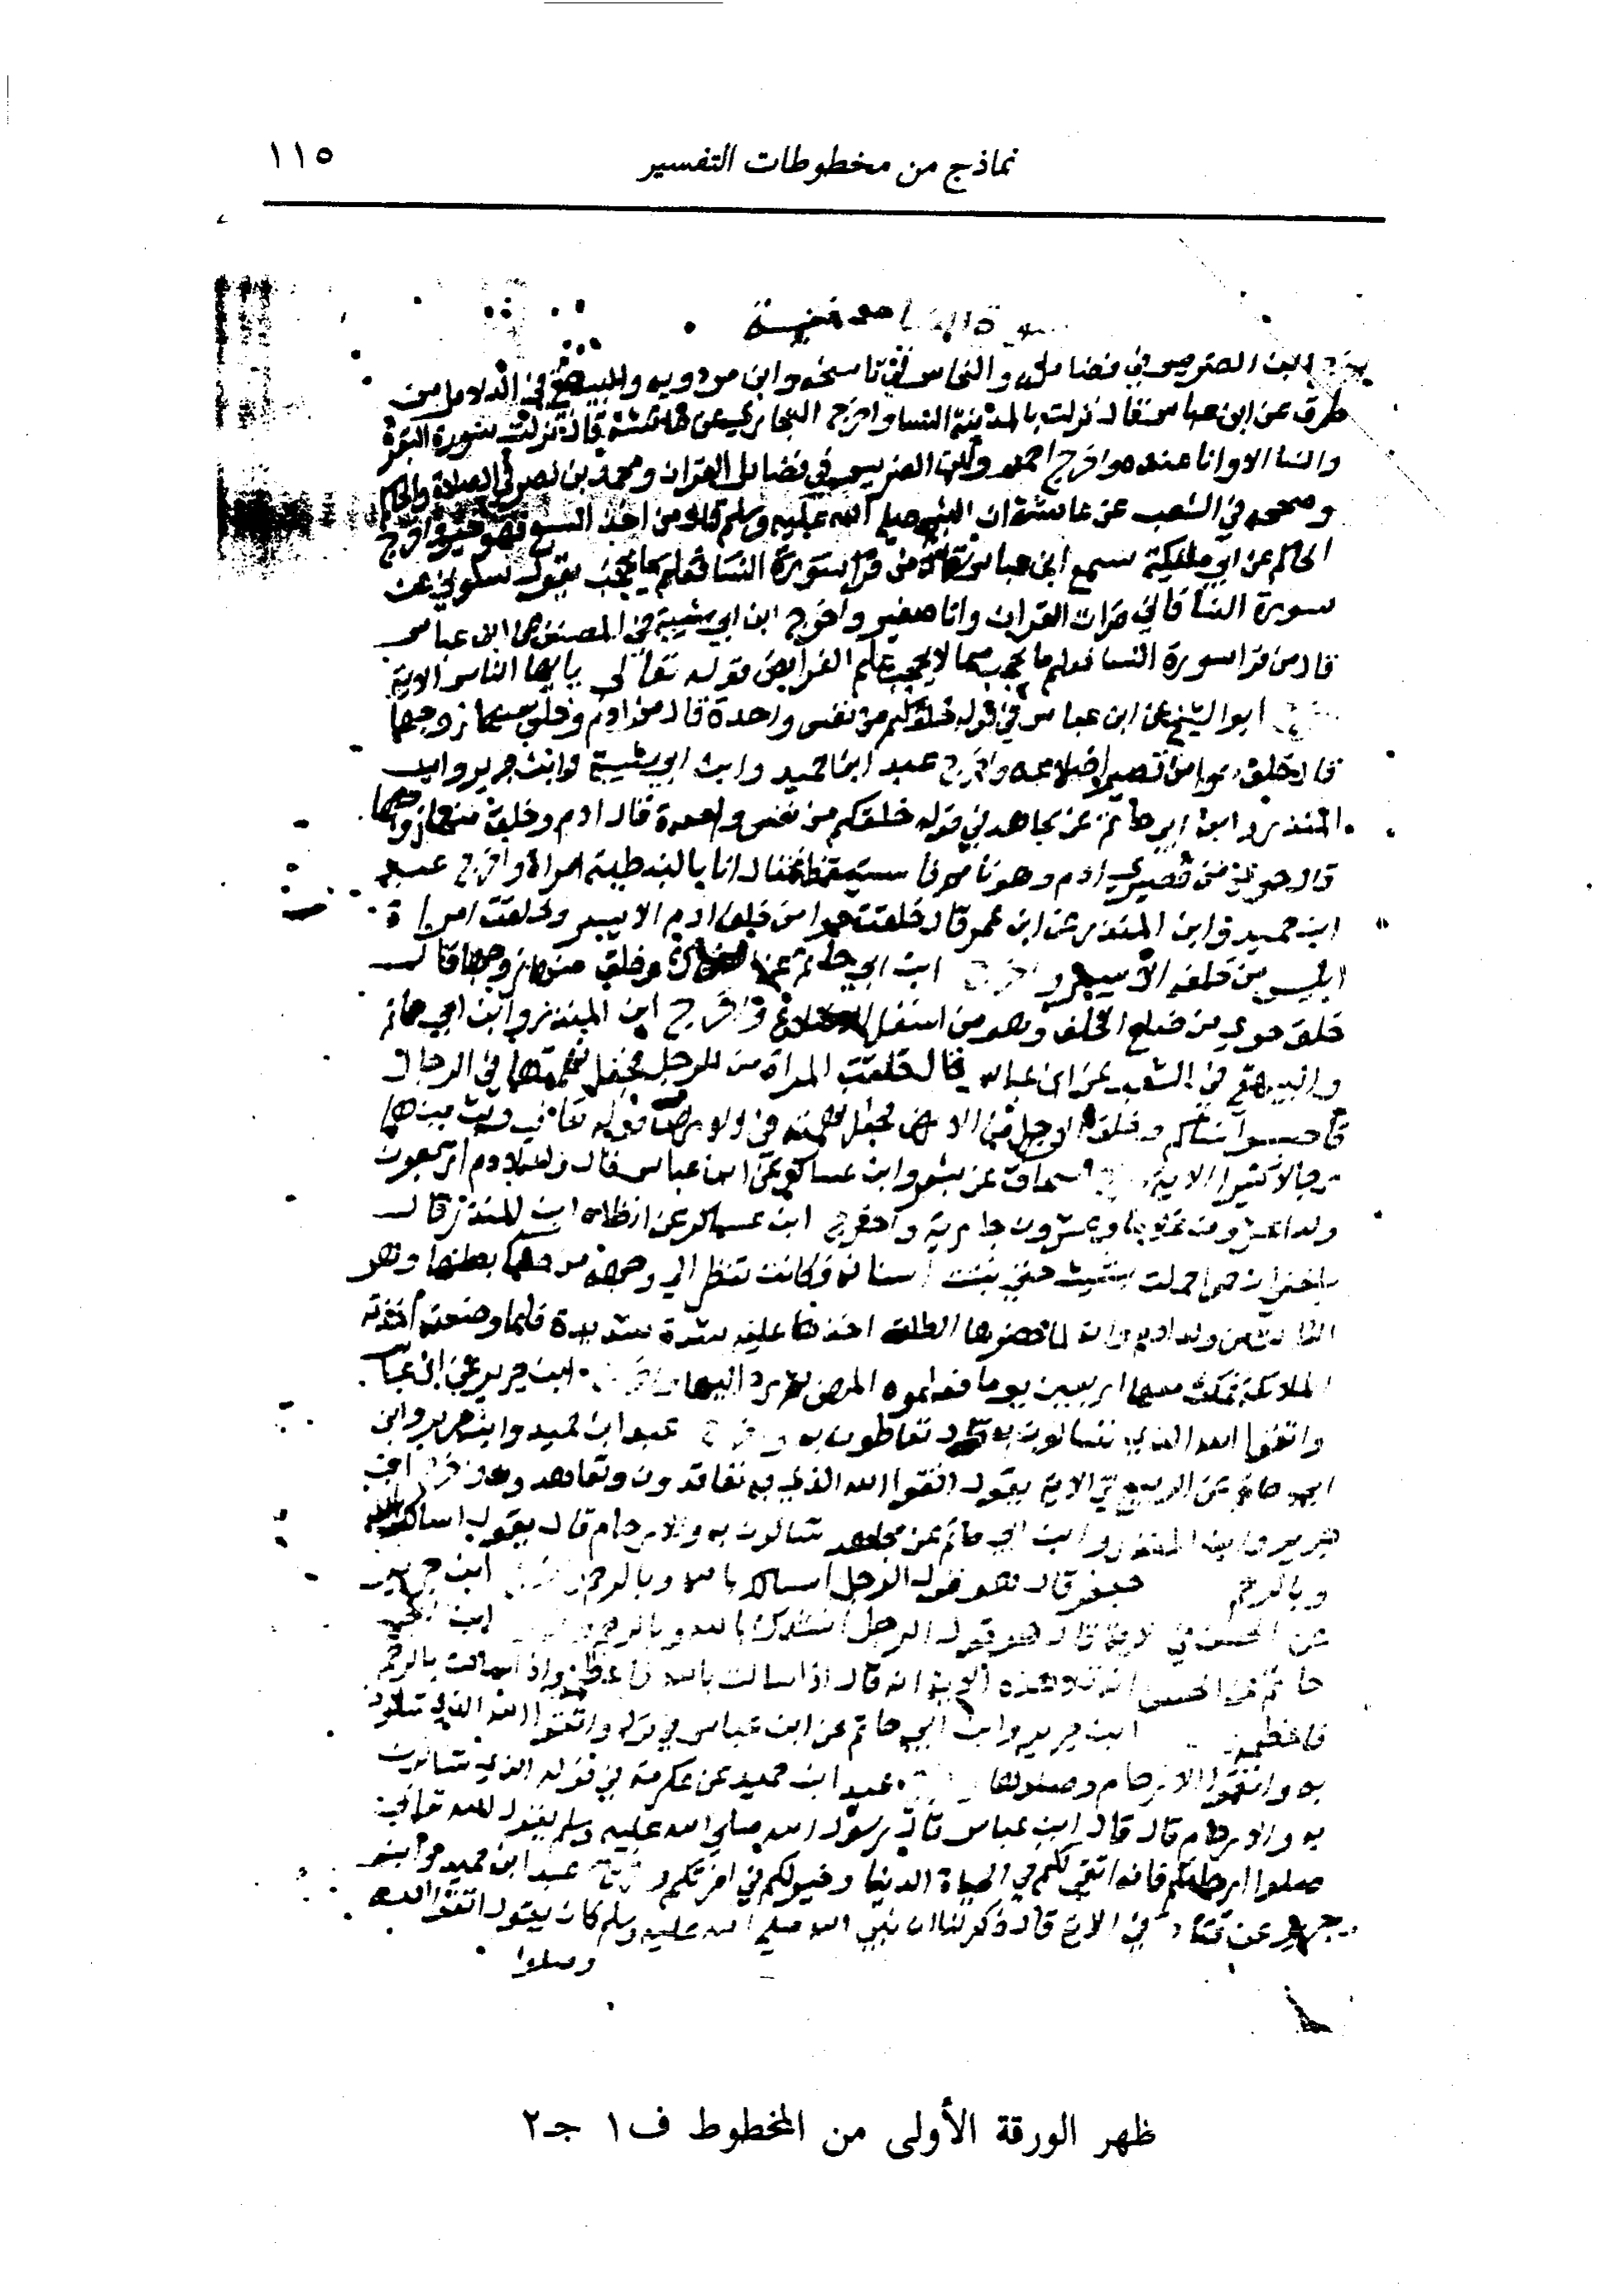 نماذج من مخطوطات التفسير
١١٥
ابن الضريس في فضائله والنحاس في ناسخه وابن مردويه والبيهقي في الدلائل من
طرق عن ابن عباس قال نزلت بالمدينة النسا واخرج البخاري عن عائشة قالت نزلت سورة البقرة
والنسا الا وانا عنده واخرج احمد وابن الضريس في فضائل القران ومحمد بن نصر في الصلاة والحاكم
وصححه في الشعب عن عائشة ان النبي صلى الله عليه وسلم قال من اخذ السبع فهو حبر واخرج
الحاكم عن ابي مليكة سمع ابن عباس من سورة النسا يقول سلوني عن
سورة النسا فاني قرات القران وانا صغير واخرج ابن ابي شيبة في المصنف عن ابن عباس
قال من قرا سورة النسا فعلم ما يحجب مما لا يحجب علم الفرايض قوله تعالى يايها الناس الاية
ابو الشيخ عن ابن عباس في قوله خلقكم من نفس واحدة قال من ادم وخلق منها زوجها
قال خلق حوا من قصيرا اضلاعه واخرج عبد ابن حميد وابن ابي شيبة وابن جرير وابن
المنذر وابن ابي حاتم عن مجاهد في قوله خلقكم من نفس واحدة قال ادم وخلق منها زوجها
قال حوا من قصيري ادم وهو نايم فاستيقظ فقال اثا بالنبطية امراة واخرج عبد
ابن حميد وابن المنذر عن ابن عمرو قال خلقت حوا من خلف ادم الايسر وخلقت امراة
ابليس من خلفه الايسر واخرج ابن ابي حاتم عن الضحاك وخلق منها زوجها قال
خلق حوى من ضلع الخلف وهو من اسفل الاضلاع واخرج ابن المنذر وابن ابي حاتم
والبيهقي في الشعب عن ابن عباس قال خلقت المراة من الرجل فجعل نهمتها في الرجال
فاحبسوا نساكم وخلق الرجل من الارض فجعل نهمته في الارض قوله تعالى وبث منهما
رجالا كثيرا الاية اسحاق عن بشر وابن عساكر عن ابن عباس قال ولد لادم اربعون
ولدا عشرون غلاما وعشرون جارية واخرج ابن عساكر عن ارطاه ابن المنذر قال
بلغني ان حوا حملت بشيث حتى نبتت اسنانه وكانت تنظر الى وجهه من صفا بطنها وهو
الثالث من ولد ادم وانه لما حضرها الطلق اخذها عليه شدة شديدة فلما وضعته اخذته
الملائكة فمكث معها اربعين يوما فعلموه الرمز ثم رد اليها ابن جرير عن ابن عباس
واتقوا الله الذي تسالون به قال تعاطون به واخرج عبد ابن حميد وابن جرير وابن
ابي حاتم عن الربيع في الاية يقول اتقوا الله الذي به تعاقدون وتعاهدون واخرج ابن
جرير وابن المنذر وابن ابي حاتم عن مجاهد تسالون به والارحام قال يقول اسالك بالله
وبالرحم قال هو قول الرجل اسالك بالله وبالرحم ابن جرير
عن الحسن في الاية قال هو قول الرجل انشدك بالله وبالرحم ابن ابي
حاتم عن الحسن انه تلا هذه الاية انه قال اذا سالت بالله فاعطه واذا سالت بالرحم
فاعطه ابن جرير وابن ابي حاتم عن ابن عباس في قوله واتقوا الله الذي تسالون
به واتقوا الارحام وصلوها عبد ابن حميد عن عكرمة في قوله الذي تسالون
به والارحام قال قال ابن عباس قال رسول الله صلى الله عليه وسلم يقول الله تعالى
صلوا ارحامكم فانه اتقى لكم في الحياة الدنيا وخير لكم في اخرتكم واخرج عبد ابن حميد وابن
جرير عن قتادة في الاية قال ذكر لنا ان نبي الله صلى الله عليه وسلم كان يقول اتقوا الله
وصلوا
ظهر الورقة الأولى من المخطوط ف١ جـ٢